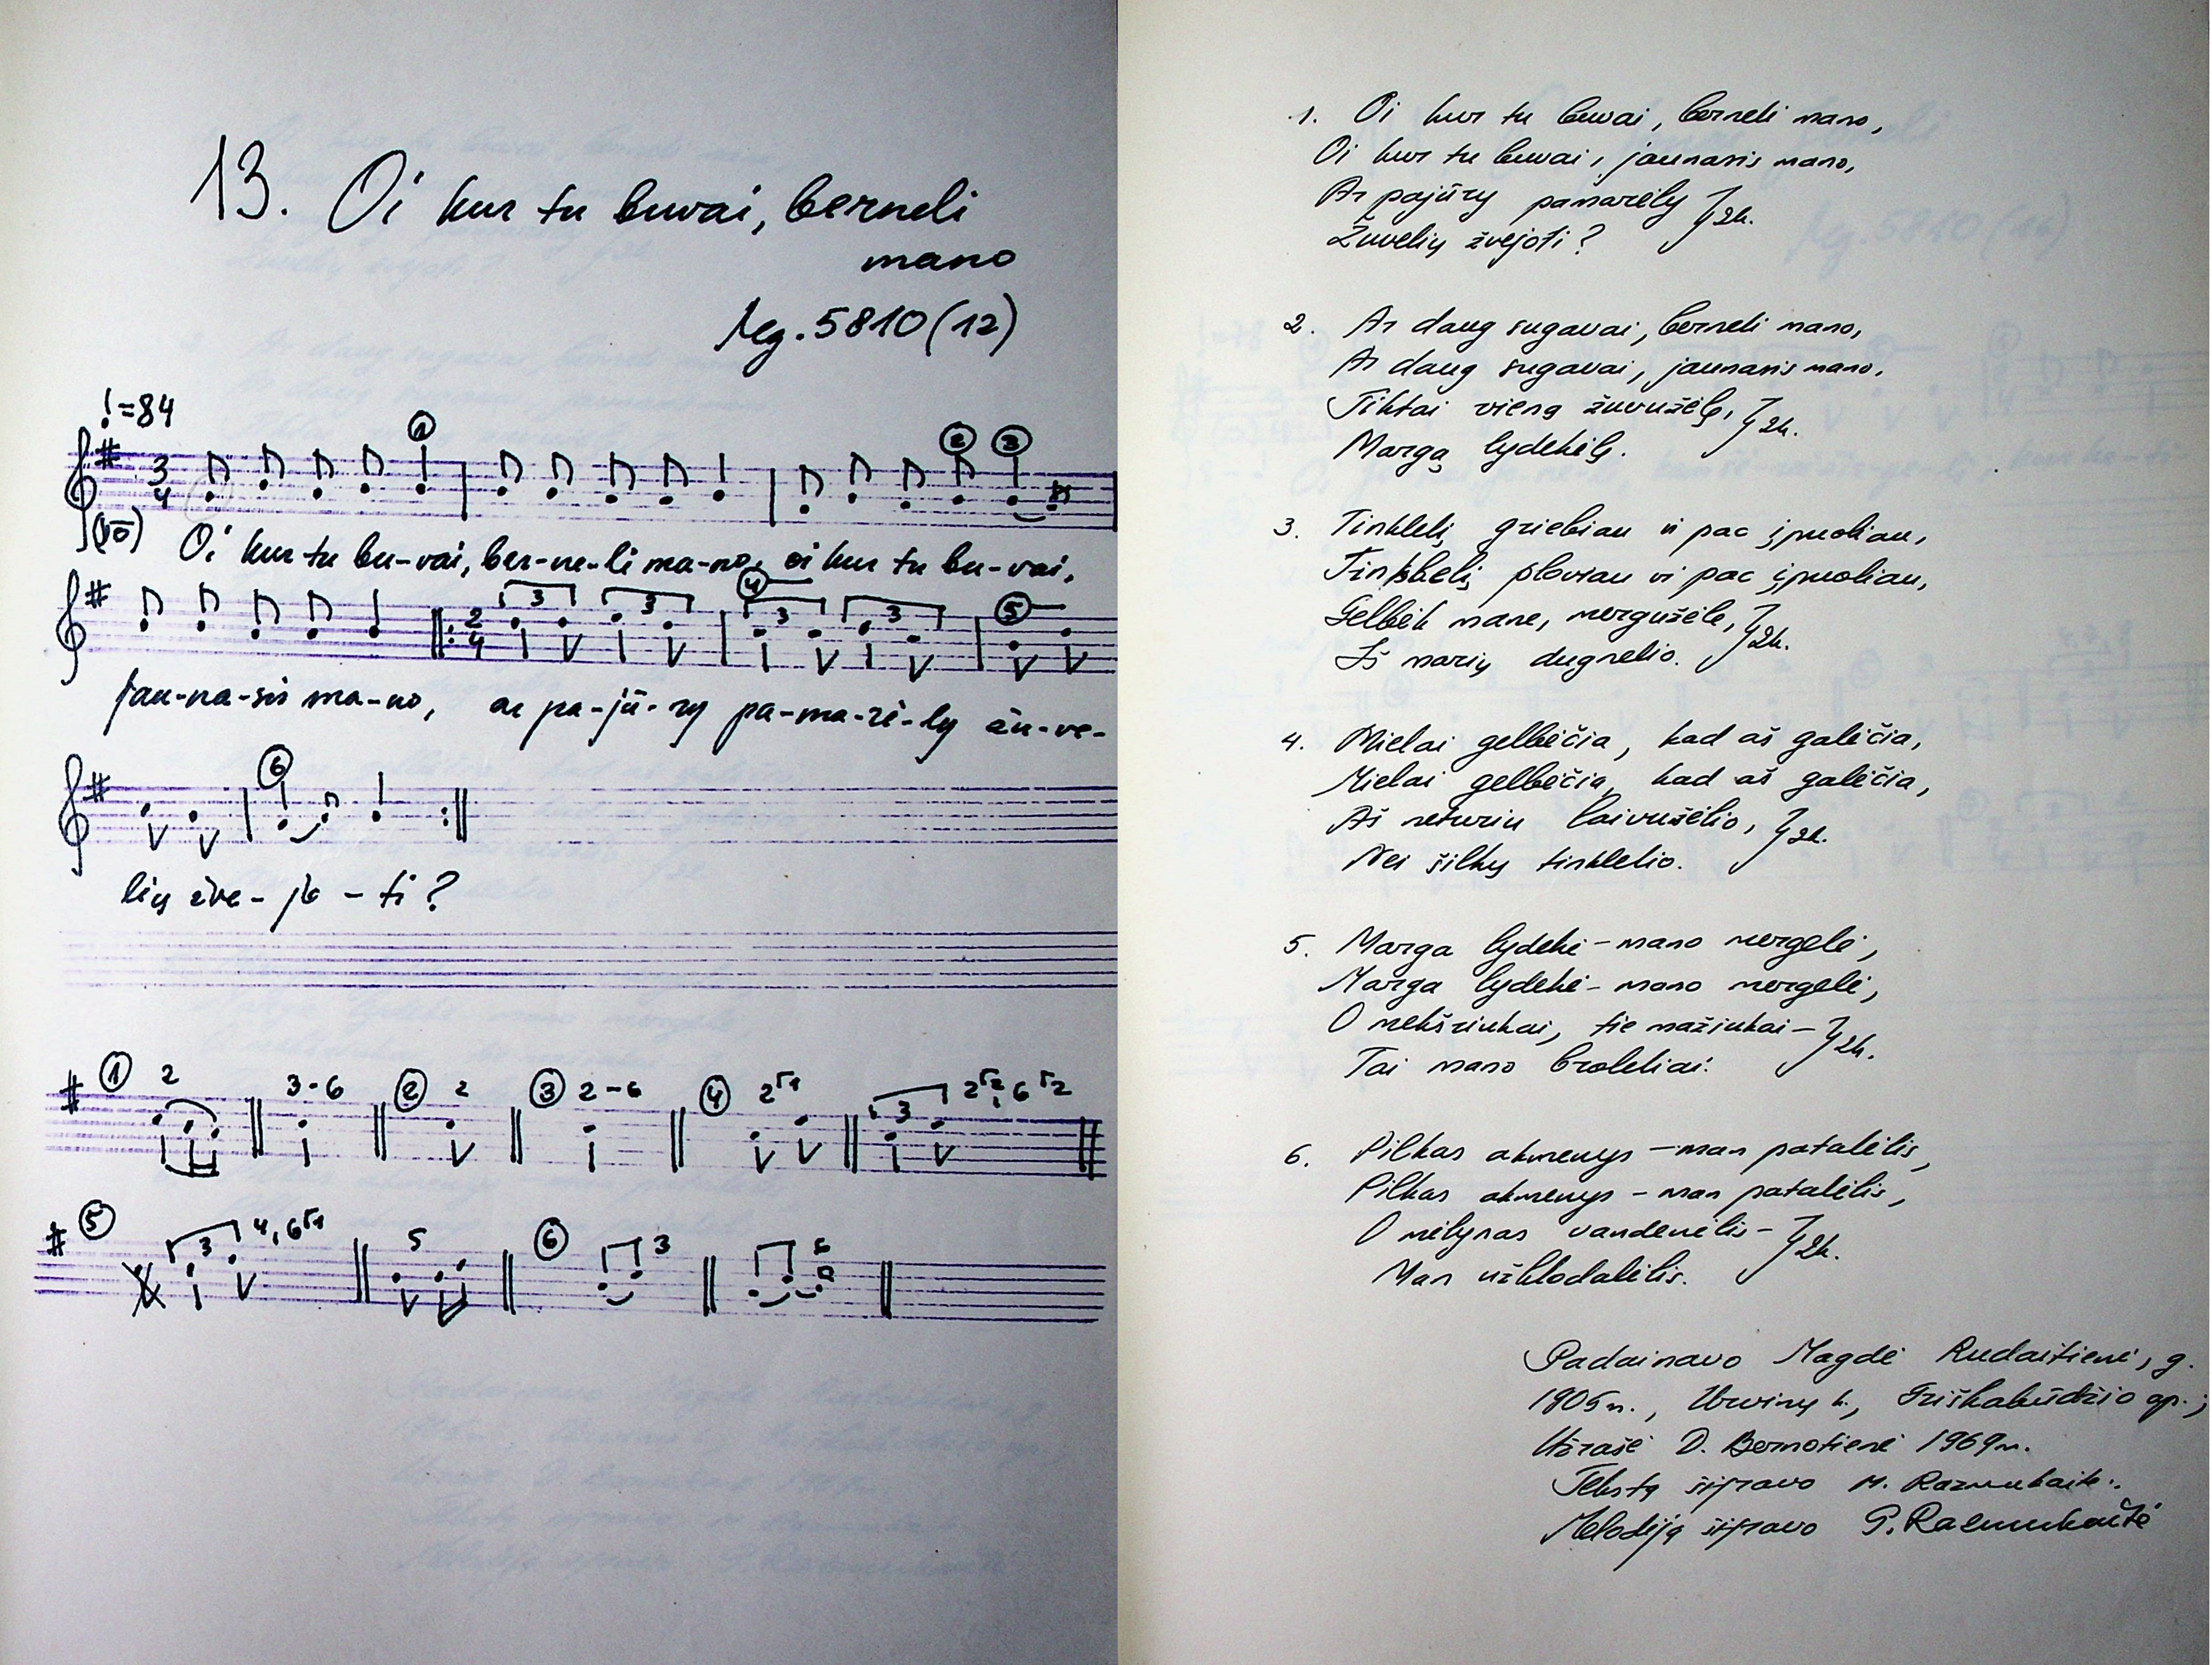 13. Oi kur tu buvai, berneli
mano
Mg. 5810 (12)
=84
3
4
Oi kur tu bu-vai, ber-ne-li ma-no, oi kur tu bu-vai,
jau-na-sis ma-no, ar pa-jū-ry pa-ma-rė-ly žu-ve-
lių žve-jo-ti?
① 2 3-6 ② 2 ③ 2-6 ④
⑤ 4, 5 ⑥ 3
1. Oi kur tu buvai, berneli mano,
Oi kur tu buvai, jaunasis mano,
Ar pajūry pamarėly } 2k.
Žuvelių žvejoti?
2. Ar daug sugavai, berneli mano,
Ar daug sugavai, jaunasis mano,
Tiktai vieną žuvužėlę, } 2k.
Margą lydekėlę.
3. Tinklelį griebiau ir pac įpuoliau,
Tinklelį ploviau ir pac įpuoliau,
Gelbėk mane, mergužėle, } 2k.
Iš marių dugnelio.
4. Mielai gelbėčia, kad aš galėčia,
Mielai gelbėčia, kad aš galėčia,
Aš neturiu laivužėlio, } 2k.
Nei šilkų tinklelio.
5. Marga lydekė - mano mergelė,
Marga lydekė - mano mergelė,
O mekšriukai, tie mažiukai - } 2k.
Tai mano broleliai.
6. Pilkas akmenys - man patalėlis,
Pilkas akmenys - man patalėlis,
O mėlynas vandenėlis - } 2k.
Man užklodalėlis.
Padainavo Magdė Rudaitienė, g.
k., Griškabūdžio ap.;
Užrašė D. Bernotienė 1969 m.
Tekstą šifravo M. Razmukaitė.
Melodiją šifravo P. Razmukaitė